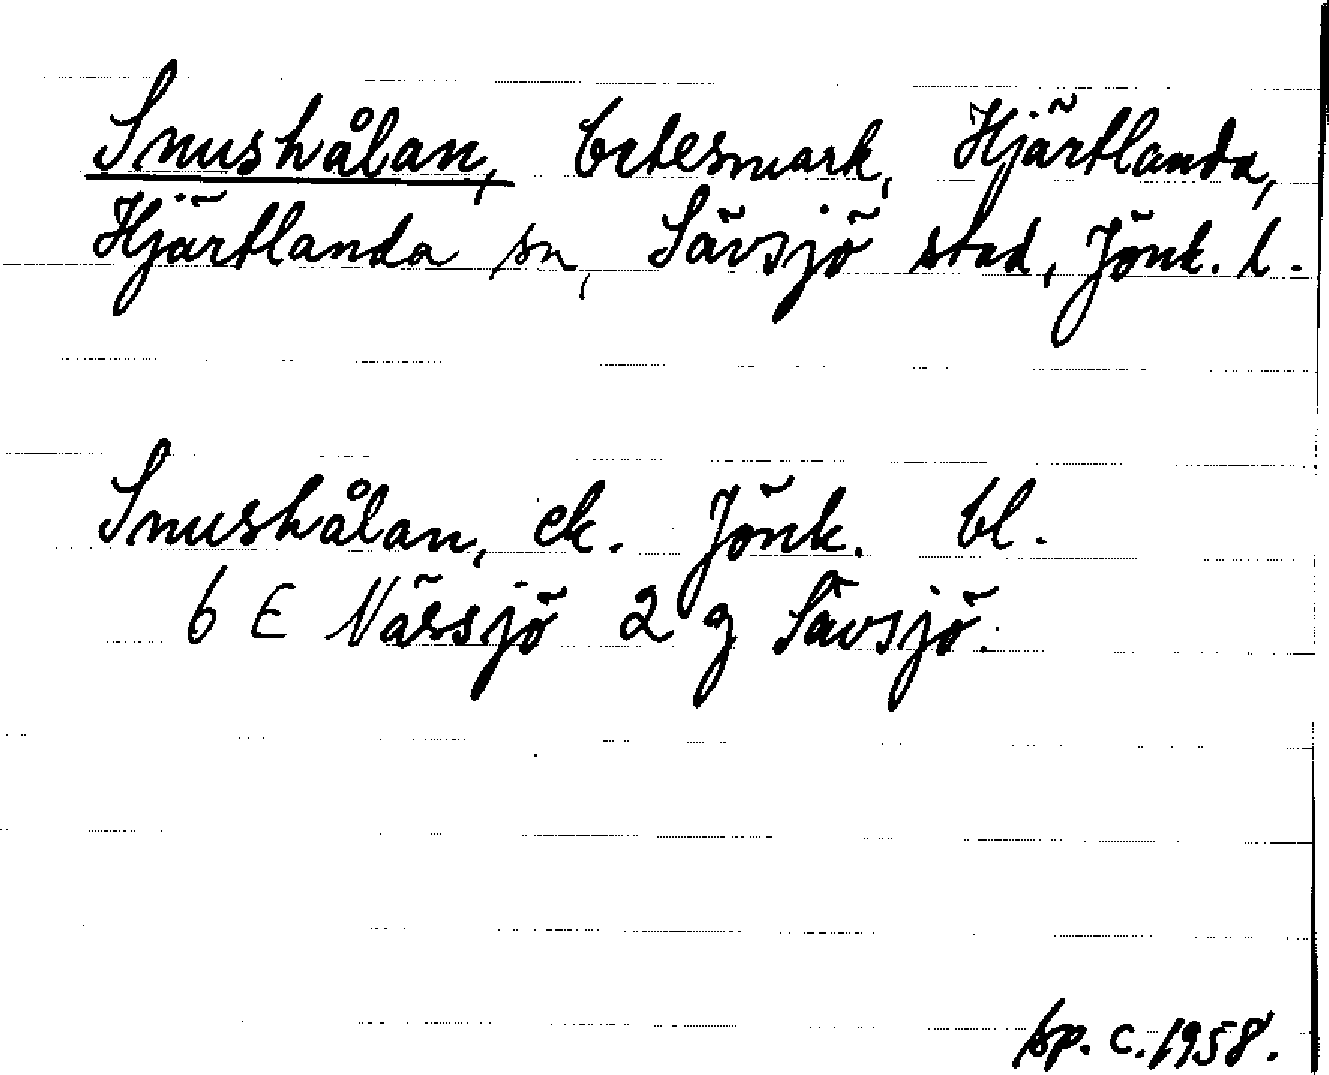 Snushålan, betesmark, Hjärtlanda,
Hjärtlanda sn, Sävsjö stad, Jönk. l.
Snushålan, ek. Jönk. bl.
6 E Nässjö 2 g Sävsjö.
sp. c. 1958.